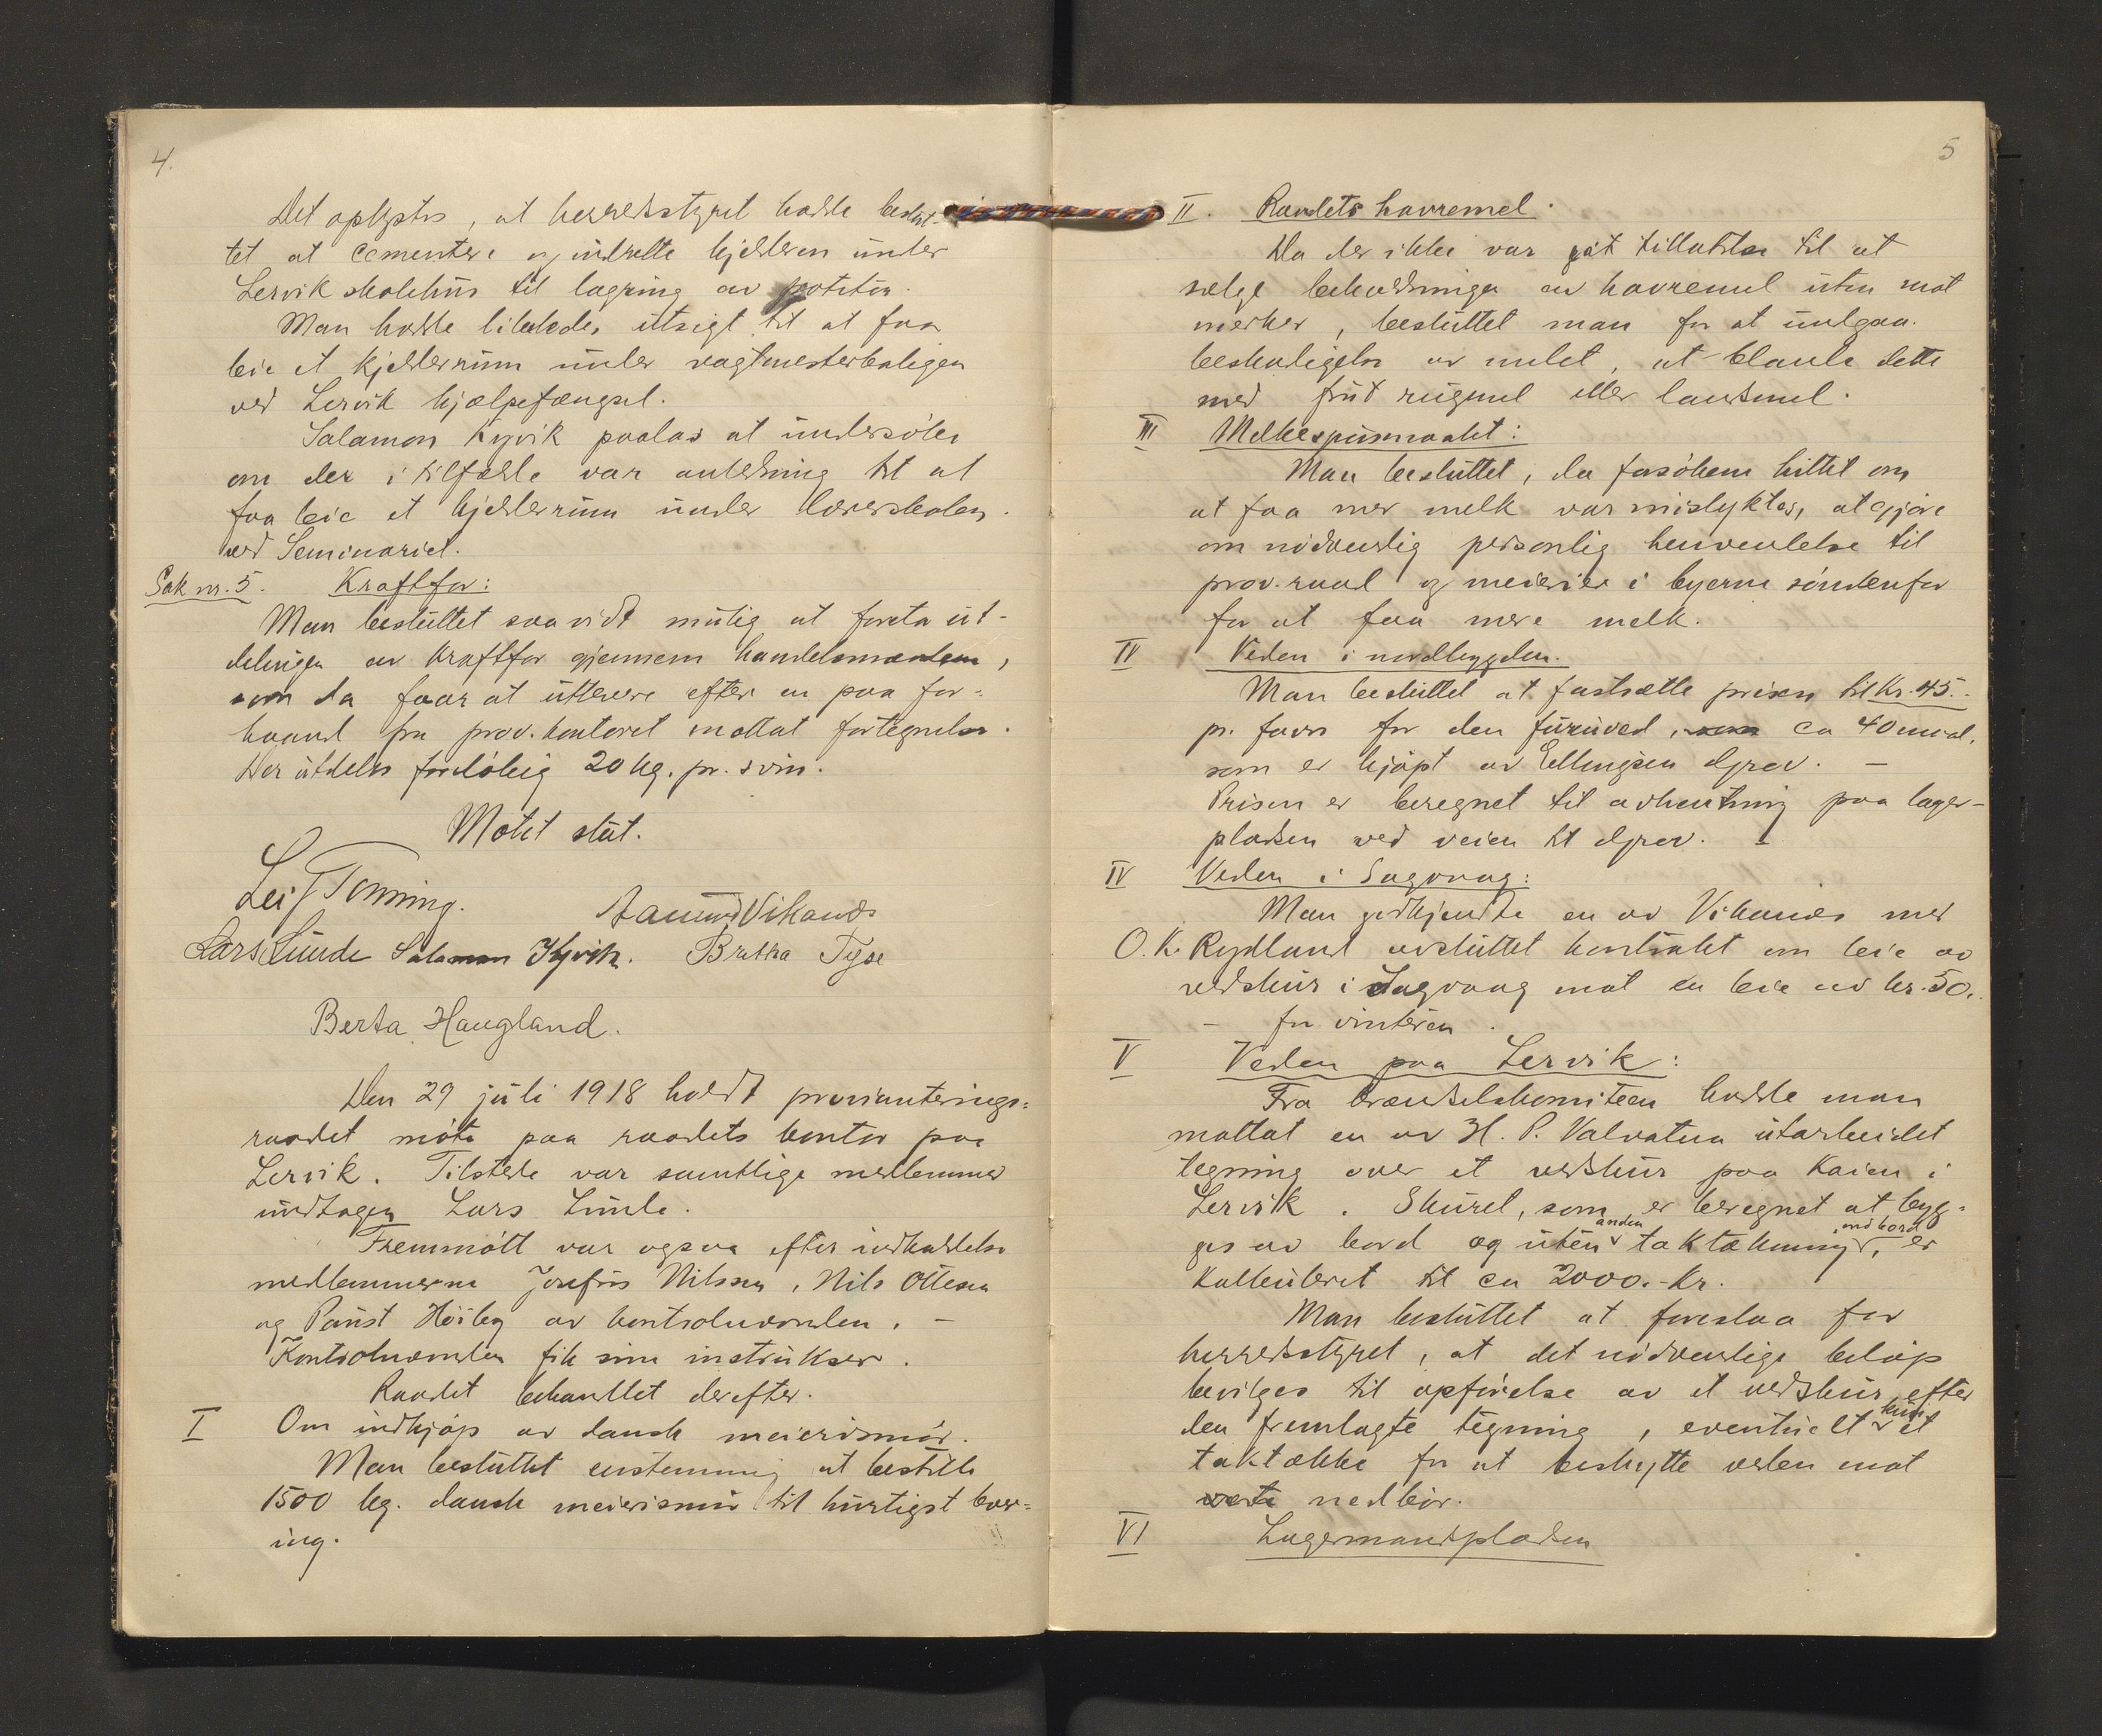 4.
Det oplystes, at herredsstyret hadde beslut-
tet at cementere og indrette kjelderen under
Lervik skolehus til lagring av poteter.
Man hadde likeledes utsigt til at faa
leie et kjelderrum under vagtmesterboligen
ved Lervik hjælpefængsel.
Salamon Kyvik paalas at undersøke
om der i tilfælde var anledning til at
faa leie et kjelderrum under lærerskolen
ved Seminariet.
Sak nr. 5. Kraftfor:
Man besluttet saavidt mulig at foreta ut-
delingen av kraftfor gjennem handelsmændene,
som da faar at utlevere efter en paa for-
haand fra prov. kontoret mottat fortegnelse.
Der utdeles foreløbig 20 kg. pr. svin.
Møtet slut.
Leif Tonning.
Aamund Vikanes
Lars Lunde Salamon Kyvik. Bertha Tyse
Berta Haugland.
Den 29 juli 1918 holdt provianterings-
raadet møte paa raadets kontor paa
Lervik. Tilstede var samtlige medlemmer
undtagen Lars Lunde.
Fremmøtt var ogsaa efter indkaldelse
medlemmerne Josefus Nilssen, Nils Ottesen
og Paust Høiby av kontrolnevnden. -
Kontrolnevnden fik sine instrukser.
Raadet behandlet derefter.
I Om indkjøp av dansk meierismør.
Man besluttet enstemmig at bestille
1500 kg. dansk meierismør til hurtigst lever-
ing.
5
II. Raadets havremel.
Da der ikke var git tillatelse til at
sælge beholdningen av havremel uten mot
merker, besluttet man for at undgaa
beskadigelse av melet, at blande dette
med fint rugmel eller landmel.
III Melkespørsmaalet:
Man besluttet, da forsøkene hittil om
at faa mer melk var mislyktes, at gjøre
om nødvendig personlig henvendelse til
prov. raad og meierier i byerne søndenfor
for at faa mere melk.
IV Veden i nordbygden.
Man besluttet at fastsætte prisen til Kr. 45.-
pr. favn for den furuved, som ca 40 maal,
som er kjøpt av Ellingsen Djrev. -
Prisen er beregnet til avhentning paa lager-
pladsen ved veien til Djrev.
IV Veden i Sagvaag:
Man godkjendte en av Vikanes med
O. K. Rydland avsluttet kontrakt om leie av
vedskur i Sagvaag mot en leie av kr. 50.
- for vinteren.
V Veden paa Lervik:
Fra brændselskomiteen hadde man
mottat en av H. P. Valvatna utarbeidet
tegning over et vedskur paa kaien i
Lervik. Skuret, som er beregnet at byg-
ges av bord og uten anden taktækning end bord, er
kalkuleret til ca 2000.- Kr.
Man besluttet at foreslaa for
herredsstyret, at det nødvendige beløp
bevilges til opførelse av et vedskur efter
den fremlagte tegning, eventuelt kun et
taktække for at beskytte veden mot
nedbør.
VI Lagermandspladsen